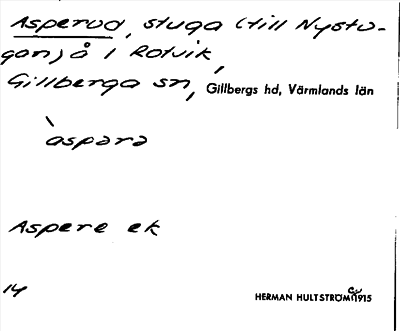 Asperud, stuga (till Nystu-
gan) å 1 Rotvik,
Gillberga sn, Gillbergs hd, Värmlands län
`aspərə
Aspere ek
14 HERMAN HULTSTRÖM 1915